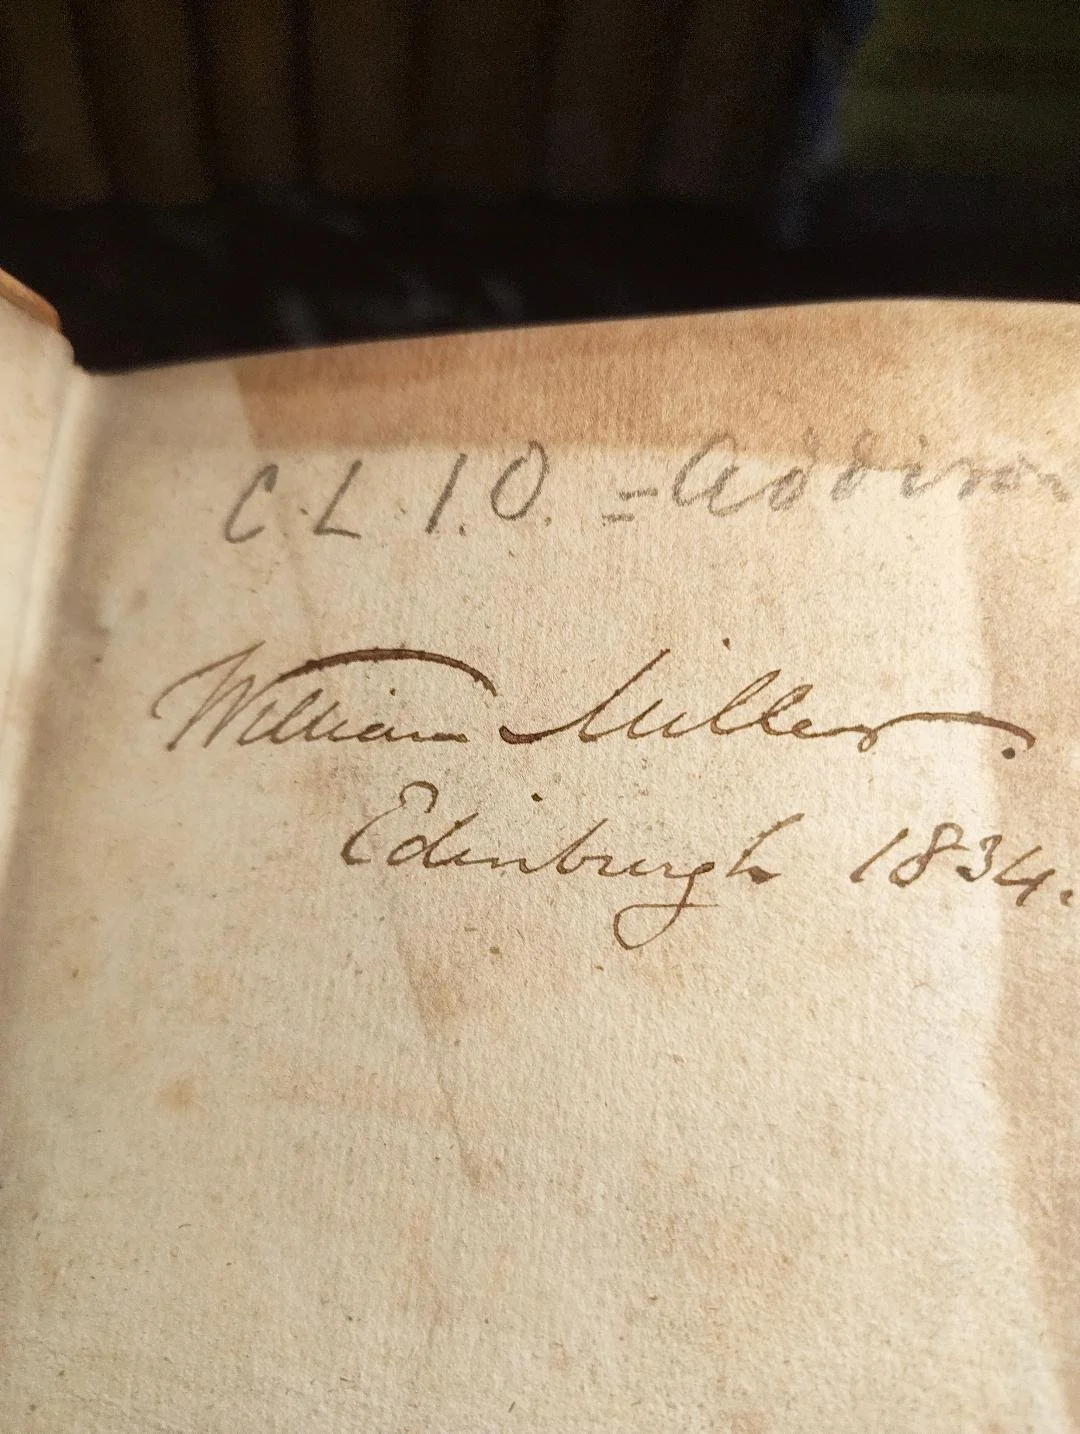 C. L. I. O. = Addison
William Miller.
Edinburgh 1834.